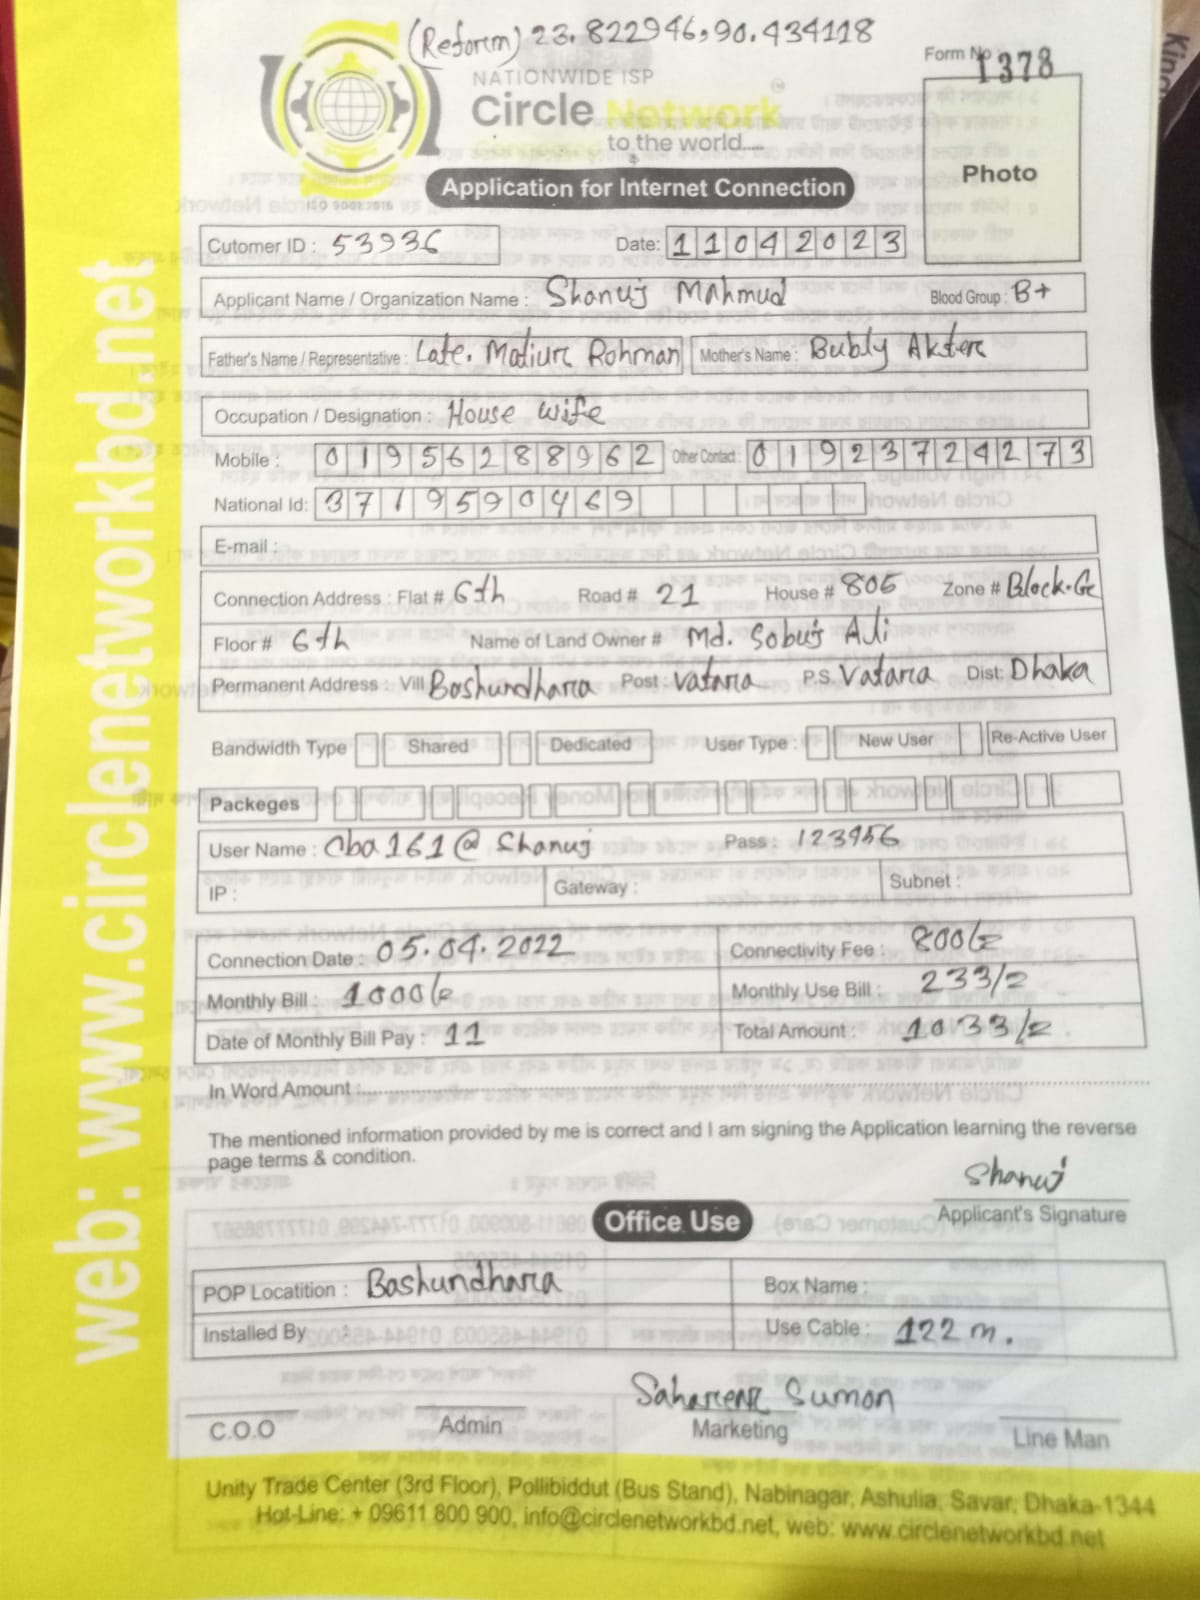 (Reform) 23.822946,90.434118
Form No 1378
NATIONWIDE ISP
Circle Network
to the world.....
ISO 9001:2015
Photo
Application for Internet Connection
Cutomer ID : 53936 Date: 11042023
Applicant Name / Organization Name : Shanuj Mahmud Blood Group : B+
Father's Name / Representative : Late. Matiur Rohman Mother's Name : Bubly Akter
Occupation / Designation : House wife
Mobile : 01956288962 Other Contact : 01923724273
National Id: 3719590469
E-mail :
Connection Address : Flat # 6th Road # 21 House # 805 Zone # Block-G
Floor # 6th Name of Land Owner # Md. Sobuj Ali
Permanent Address : Vill Boshundhara Post : vatara P.S. Vatara Dist: Dhaka
Bandwidth Type Shared Dedicated User Type : New User Re-Active User
Packeges
User Name : Cba161@Shanuj Pass : 123456
IP : Gateway : Subnet :
Connection Date : 05.04.2022 Connectivity Fee : 800/=
Monthly Bill : 1000/= Monthly Use Bill : 233/=
Date of Monthly Bill Pay : 11 Total Amount : 1033/=
In Word Amount :
The mentioned information provided by me is correct and I am signing the Application learning the reverse
page terms & condition.
Shanuj
Applicant's Signature
Office Use
POP Locatition : Boshundhara Box Name :
Installed By : Use Cable : 122 m.
Sumon
C.O.O Admin Marketing Line Man
Unity Trade Center (3rd Floor), Pollibiddut (Bus Stand), Nabinagar, Ashulia, Savar, Dhaka-1344
Hot-Line: + 09611 800 900, info@circlenetworkbd.net, web: www.circlenetworkbd.net
web: www.circlenetworkbd.net